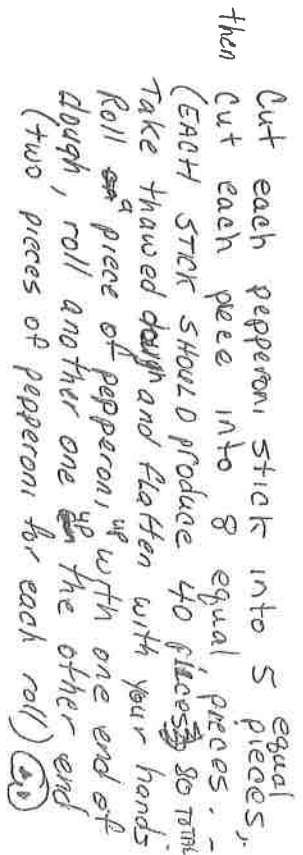 Cut each pepperoni stick into 5 equal pieces,
then cut each piece into 8 equal pieces. -
(EACH STICK SHOULD produce 40 pieces 80 TOTAL
Take thawed dough and flatten with your hands
Roll a piece of pepperoni up with one end of
dough, roll another one up the other end
(two pieces of pepperoni for each roll)